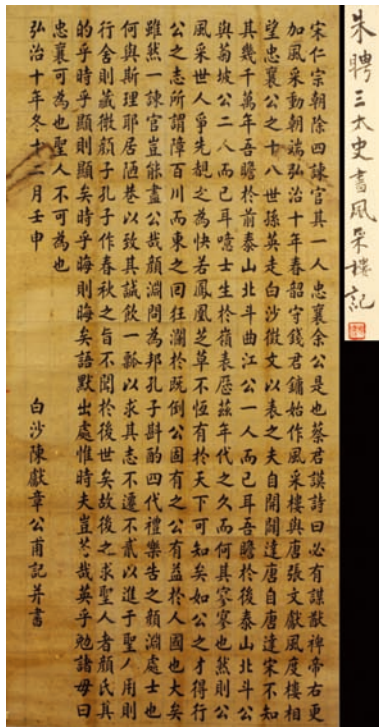 朱聘三太史書風采樓記
宋仁宗朝除四諫官其一人忠襄余公是也蔡君謨詩曰必有謀猷裨帝右更
加風采動朝端弘治十年春韶守錢君鏞始作風采樓與唐張文獻風度樓相
望忠襄公之十八世孫英走白沙徵文以表之夫自開闢達唐自唐達宋不知
其幾千萬年吾瞻於前泰山北斗曲江公一人而已耳吾瞻於後泰山北斗公
與菊坡公二人而已耳噫士生於嶺表歷茲年代之久而何其寥寥也然則公
風采世人爭先覩之為快若鳳凰芝草不恆有於天下可知矣如公之才得行
公之志所謂障百川而東之回狂瀾於既倒公固有之公有益於人國也大矣
雖然一諫官豈能盡公哉顏淵問為邦孔子斟酌四代禮樂告之顏淵處士也
何與斯理耶居陋巷以致其誠飲一瓢以求其志不遷不貳以進于聖人用則
行舍則藏微顏子孔子作春秋之旨不聞於後世矣故後之求聖人者顏氏其
的乎時乎顯則顯矣時乎晦則晦矣語默出處惟時夫豈苟哉英乎勉諸毋曰
忠襄可為也聖人不可為也
弘治十年冬十二月壬申 白沙陳獻章公甫記并書